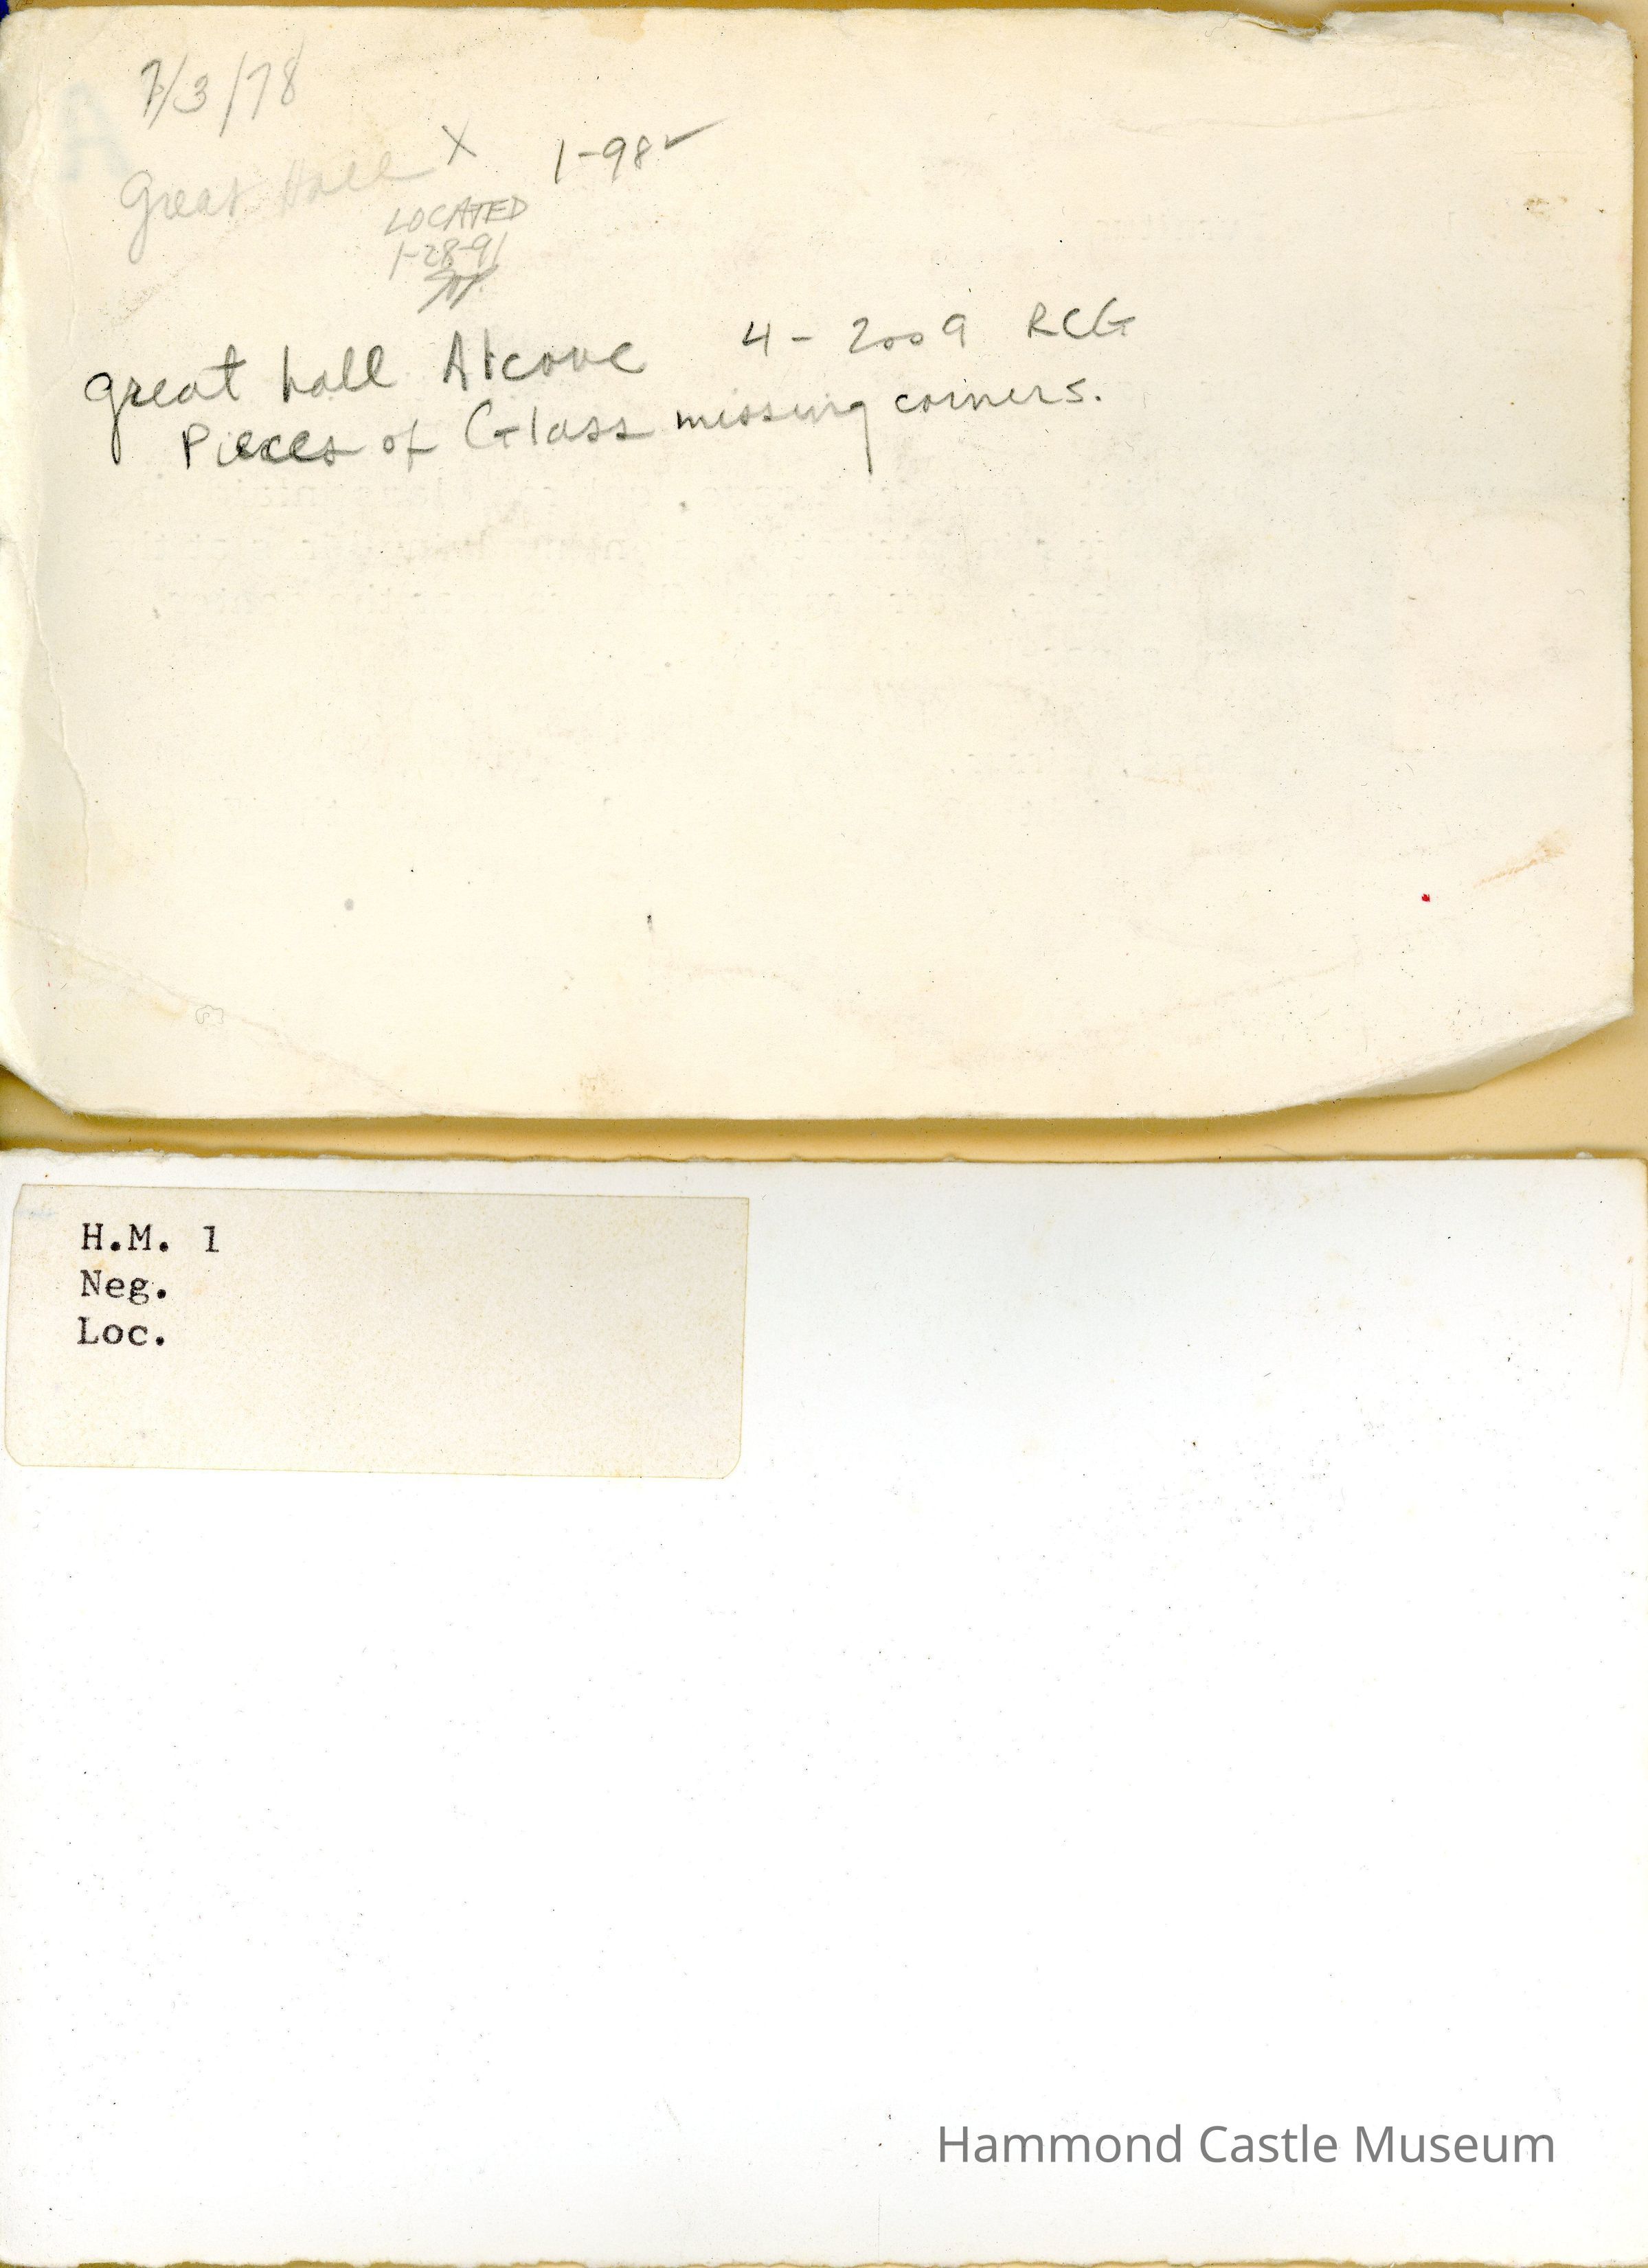 7/3/78
Great Hall X 1-98 ✓
LOCATED
1-28-91
Great hall Alcove 4-2009 RCG
Pieces of Glass missing corners.
H.M. 1
Neg.
Loc.
Hammond Castle Museum